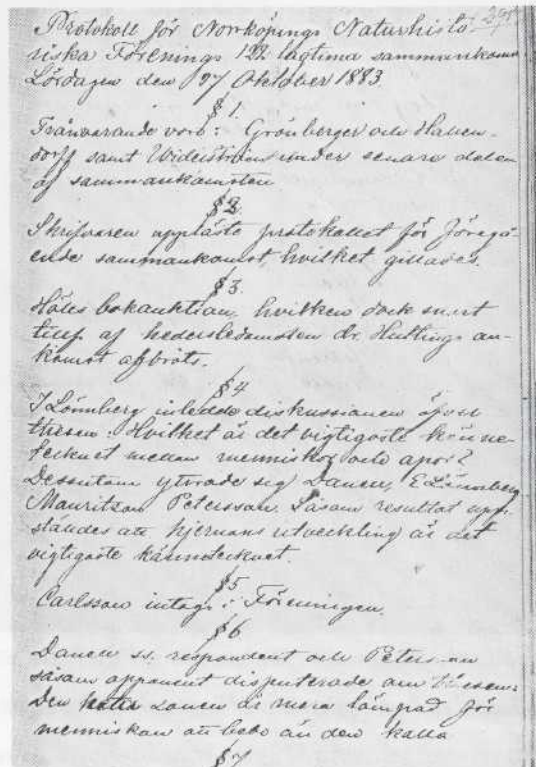 Protokoll för Norrköpings Naturhisto-
riska Förenings 122 lagtima sammankomst
Lördagen den 27 Oktober 1883.
§ 1.
Frånvarande voro: Grönberger och Hallen-
dorff samt Widerström under senare delen
af sammankomsten.
§ 2.
Skrifvaren uppläste protokollet för föregå-
ende sammankomst, hvilket gillades.
§ 3.
Hölls bokauktion, hvilken dock snart
till af hedersledamoten dr. Hultings an-
komst afbröts.
§ 4
J Lönnberg inledde diskussionen öfver
thesen: Hvilket är det vigtigaste känne-
tecknet mellan menniskor och apor?
Dessutom yttrade sig Danell, E Lönnberg
Mauritzon Petersson. Såsom resultat upp-
stäldes att hjernans utveckling är det
vigtigaste kännetecknet.
§ 5
Carlsson intogs i Föreningen.
§ 6
Danell ss. respondent och Petersson
såsom opponent disputerade om thesen:
Den heta zonen är mera lämpad för
menniskan att bebo än den kalla
§ 7